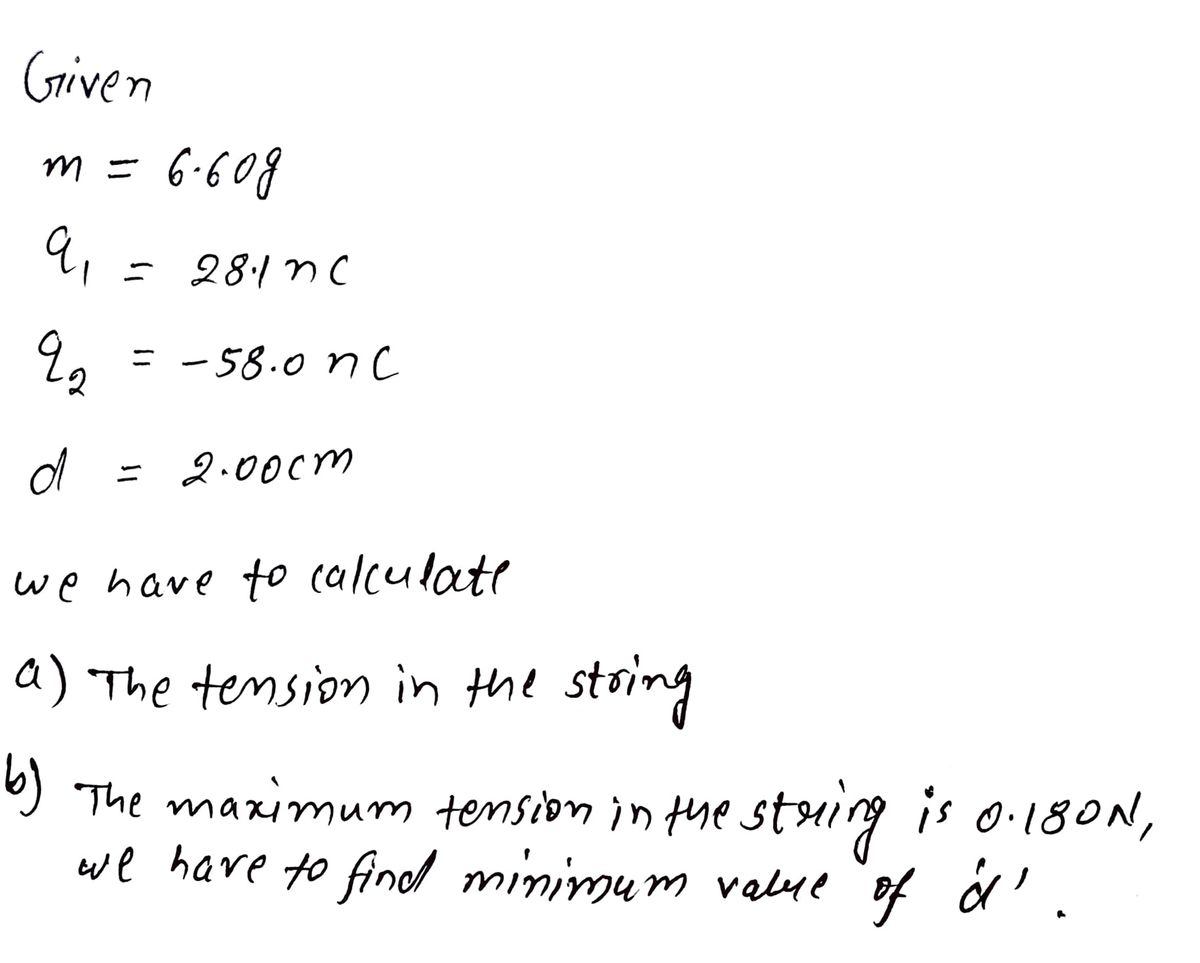 Given
m = 6.60g
q₁ = 28.1 nC
q₂ = -58.0 nC
d = 2.00cm
we have to calculate
a) The tension in the string
b) The maximum tension in the string is 0.180N,
we have to find minimum value of 'd'.